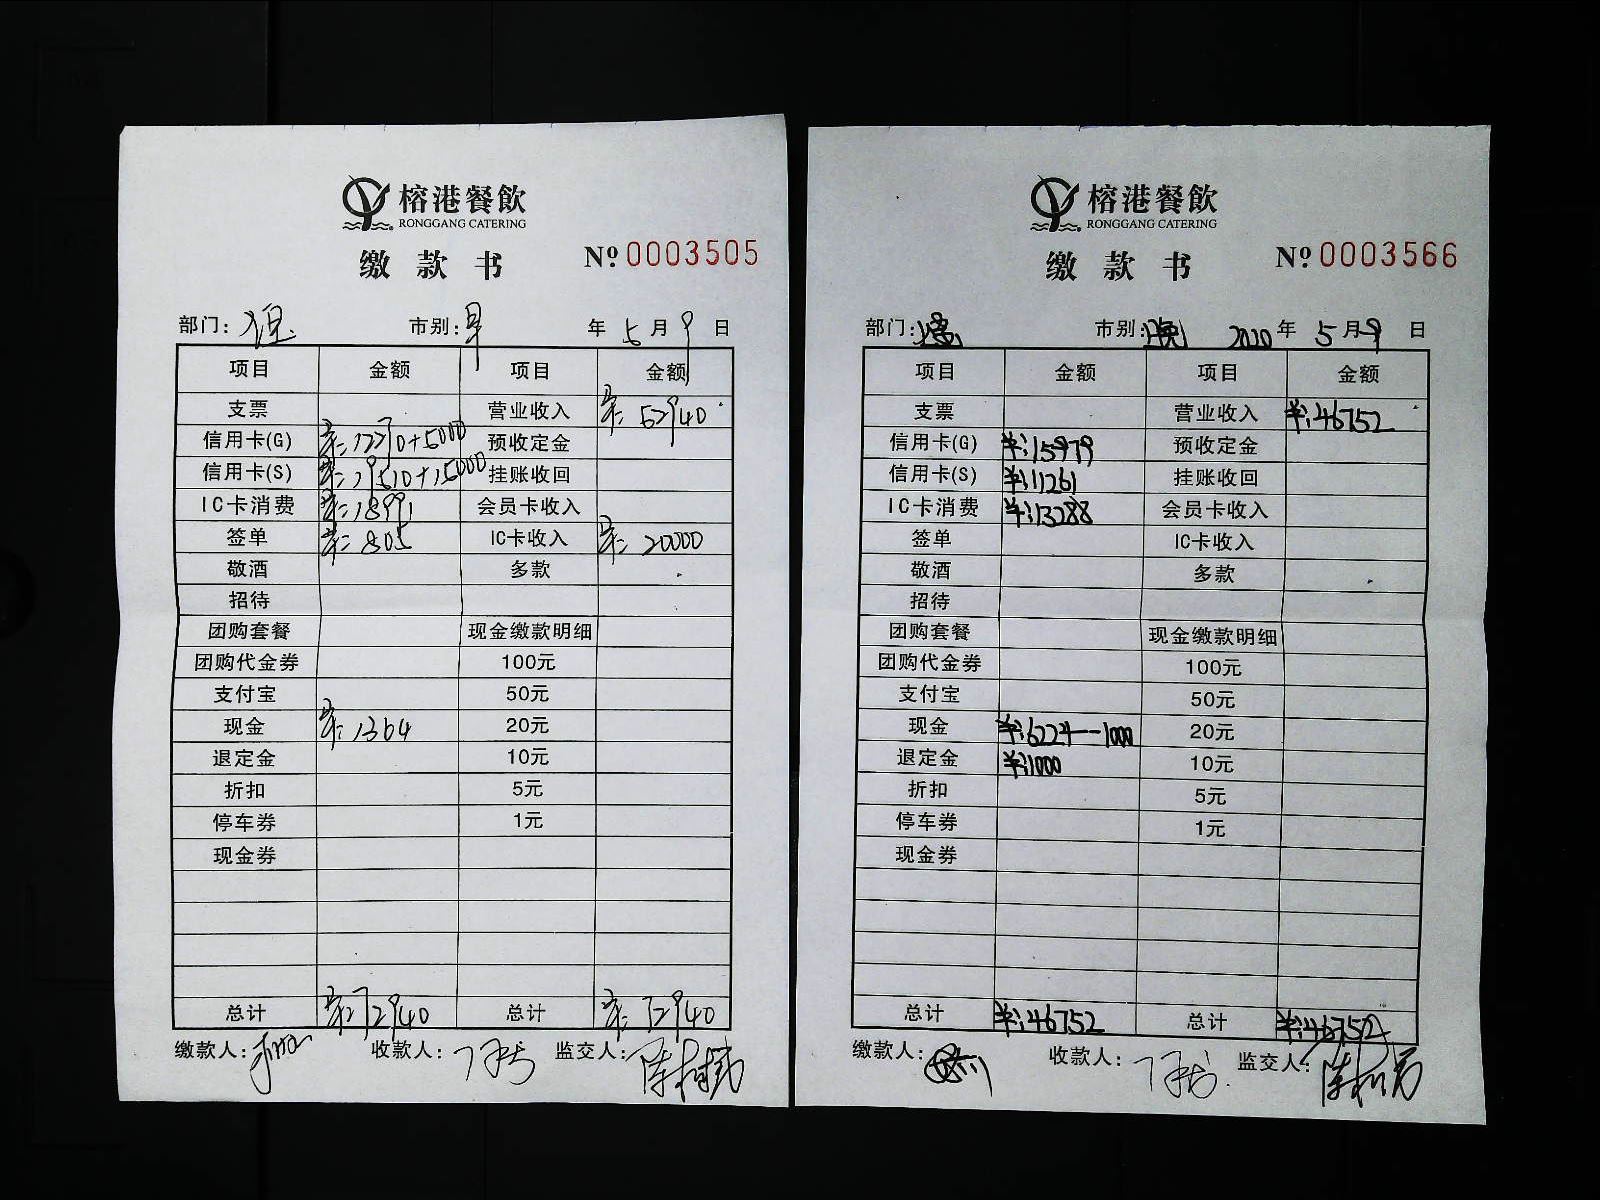 榕港餐飲
RONGGANG CATERING
缴款书 № 0003505
部门: 市别: 早 年 5 月 9 日
项目 金额 项目 金额
支票 营业收入 ¥: 52940
信用卡(G) +5000 预收定金
信用卡(S) +15000 挂账收回
IC卡消费 ¥: 18991 会员卡收入
签单 ¥: 805 IC卡收入 ¥: 20000
敬酒 多款
招待
团购套餐 现金缴款明细
团购代金券 100元
支付宝 50元
现金 ¥: 1364 20元
退定金 10元
折扣 5元
停车券 1元
现金券
总计 ¥: 72940 总计 ¥: 72940
缴款人: 收款人: 监交人:
榕港餐飲
RONGGANG CATERING
缴款书 № 0003566
部门: 市别: 晚 2020 年 5 月 9 日
项目 金额 项目 金额
支票 营业收入 ¥:46752
信用卡(G) ¥:15979 预收定金
信用卡(S) ¥:11261 挂账收回
IC卡消费 ¥:13288 会员卡收入
签单 IC卡收入
敬酒 多款
招待
团购套餐 现金缴款明细
团购代金券 100元
支付宝 50元
现金 ¥:6224-1000 20元
退定金 ¥:1000 10元
折扣 5元
停车券 1元
现金券
总计 ¥:46752 总计 ¥:46752
缴款人: 收款人: 监交人: